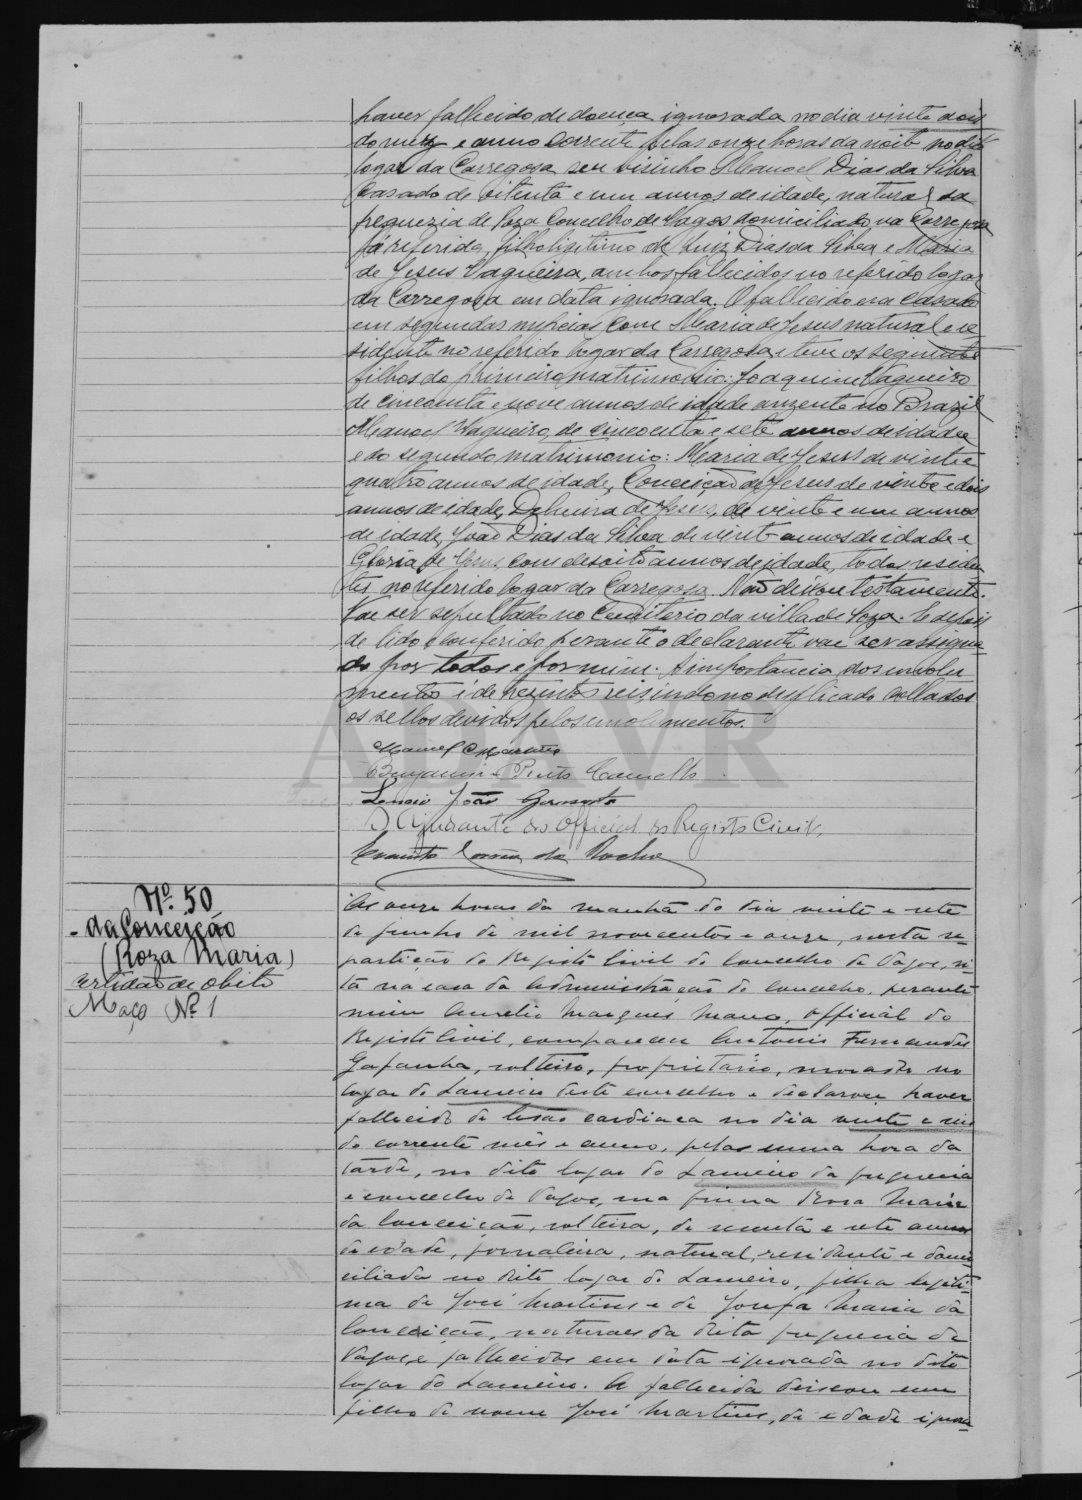 haver fallecido de doença ignorada no dia vinte dois
do mez e anno corrente pelas onze horas da noite no dito
logar da Carregosa seu visinho Manoel Dias da Silva
Casado de oitenta e um annos de idade, natural da
freguezia de Soza Concelho de Vagos domiciliado na Carregosa
já referida, filho legitimo de Luiz Dias da Silva e Maria
de Jesus Vagueira, ambos fallecidos no referido logar
da Carregosa em data ignorada. O fallecido era casado
em segundas nupcias com Maria de Jesus natural e re
sidente no referido logar da Carregosa e teve os seguintes
filhos do primeiro matrimonio: Joaquim Vagueiro
de cincoenta e nove annos de idade auzente no Brazil
Manoel Vagueiro, de cincoenta e sete annos de idade
e do segundo matrimonio: Maria de Jesus de vinte e
quatro annos de idade, Conceição de Jesus de vinte e dois
annos de idade, de Jesus, de vinte e um annos
de idade, João Dias da Silva de vinte annos de idade e
Gloria de Jesus, com desoito annos de idade, todos residen
tes no referido logar da Carregosa. Não deixou testamento.
Vae ser sepultado no Cemiterio da villa de Soza. E depois
de lido e conferido perante o declarante vae ser assigna-
do por todos e por mim. A importancia dos emolu
mentos é de trezentos reis, sendo no duplicado collados
os sellos devidos pelos emolumentos.
Manoel Martins
Benjamim Pinto Camello
João
O Ajudante do Official do Registo Civil,
Correia da Rocha
ADAVR
Nº. 50
- da Conceição
(Roza Maria)
certidão de obito
Maço Nº 1
Ás onze horas da manhã do dia vinte e sete
de junho de mil novecentos e onze, nesta re-
partição do Registo Civil do Concelho de Vagos, si-
ta na casa da Administração do Concelho, perante
mim Aurelio Marques Mano, Official do
Registo Civil, compareceu Antonio Fernandes
Gafanha, solteiro, proprietario, morador no
logar do Lameiro deste concelho e declarou haver
fallecido de lesão cardiaca no dia vinte e seis
do corrente mês e anno, pelas uma hora da
tarde, no dito logar do Lameiro da freguesia
e concelho de Vagos, sua prima Rosa Maria
da Conceição, solteira, de setenta e sete annos
de idade, jornaleira, natural, residente e domi-
ciliada no dito logar do Lameiro, filha legiti-
ma de José Martins e de Josefa Maria da
Conceição, naturaes da dita freguesia de
Vagos, e fallecidos em data ignorada no dito
logar do Lameiro. A fallecida deixou um
filho de nome José Martins, de idade ignora-